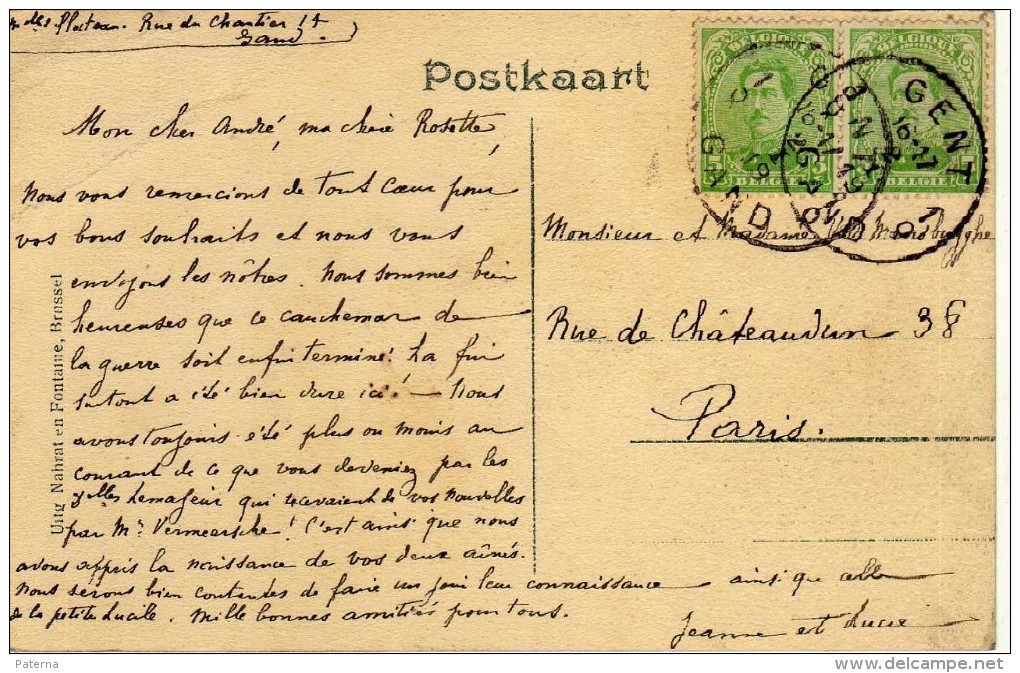 Plateau. Rue du Chantier 17
Gand.
Postkaart
BELGIQUE
BELGIQUE
5 5
BELGIE
BELGIE
GENT
GAND
Mon cher André, ma chère Rosette,
Nous vous remercions de tout cœur pour
vos bons souhaits et nous vous
envoyons les nôtres. Nous sommes bien
heureuses que ce cauchemar de
la guerre soit enfin terminé! La fin
surtout a été bien dure ici! — Nous
avons toujours été plus ou moins au
courant de ce que vous deveniez par les
Lemasseur qui recevaient de vos nouvelles
par Mr Vermeersche! C'est ainsi que nous
avons appris la naissance de vos deux aînés.
Nous serons bien contentes de faire un jour leur connaissance ainsi que celle
de la petite Lucile. Mille bonnes amitiés pour tous.
Jeanne et Lucie
Monsieur et Madame
Rue de Châteaudun 38
Paris.
Uitg Nahrat en Fontaine, Brussel
Paterna
delcampe.net